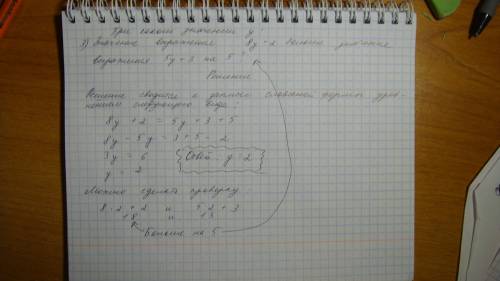 При каком значении y
значение выражения 8y + 2 больше значения
выражения 5y + 3 на 5
Решение
Решение сводится к данным словесной формы урав-
нением следующего вида:
8y + 2 = 5y + 3 + 5
8y - 5y = 3 + 5 - 2
3y = 6 Ответ: y = 2
y = 2
Можно сделать проверку
8 · 2 + 2 и 5 · 2 + 3
18 и 13
Больше на 5